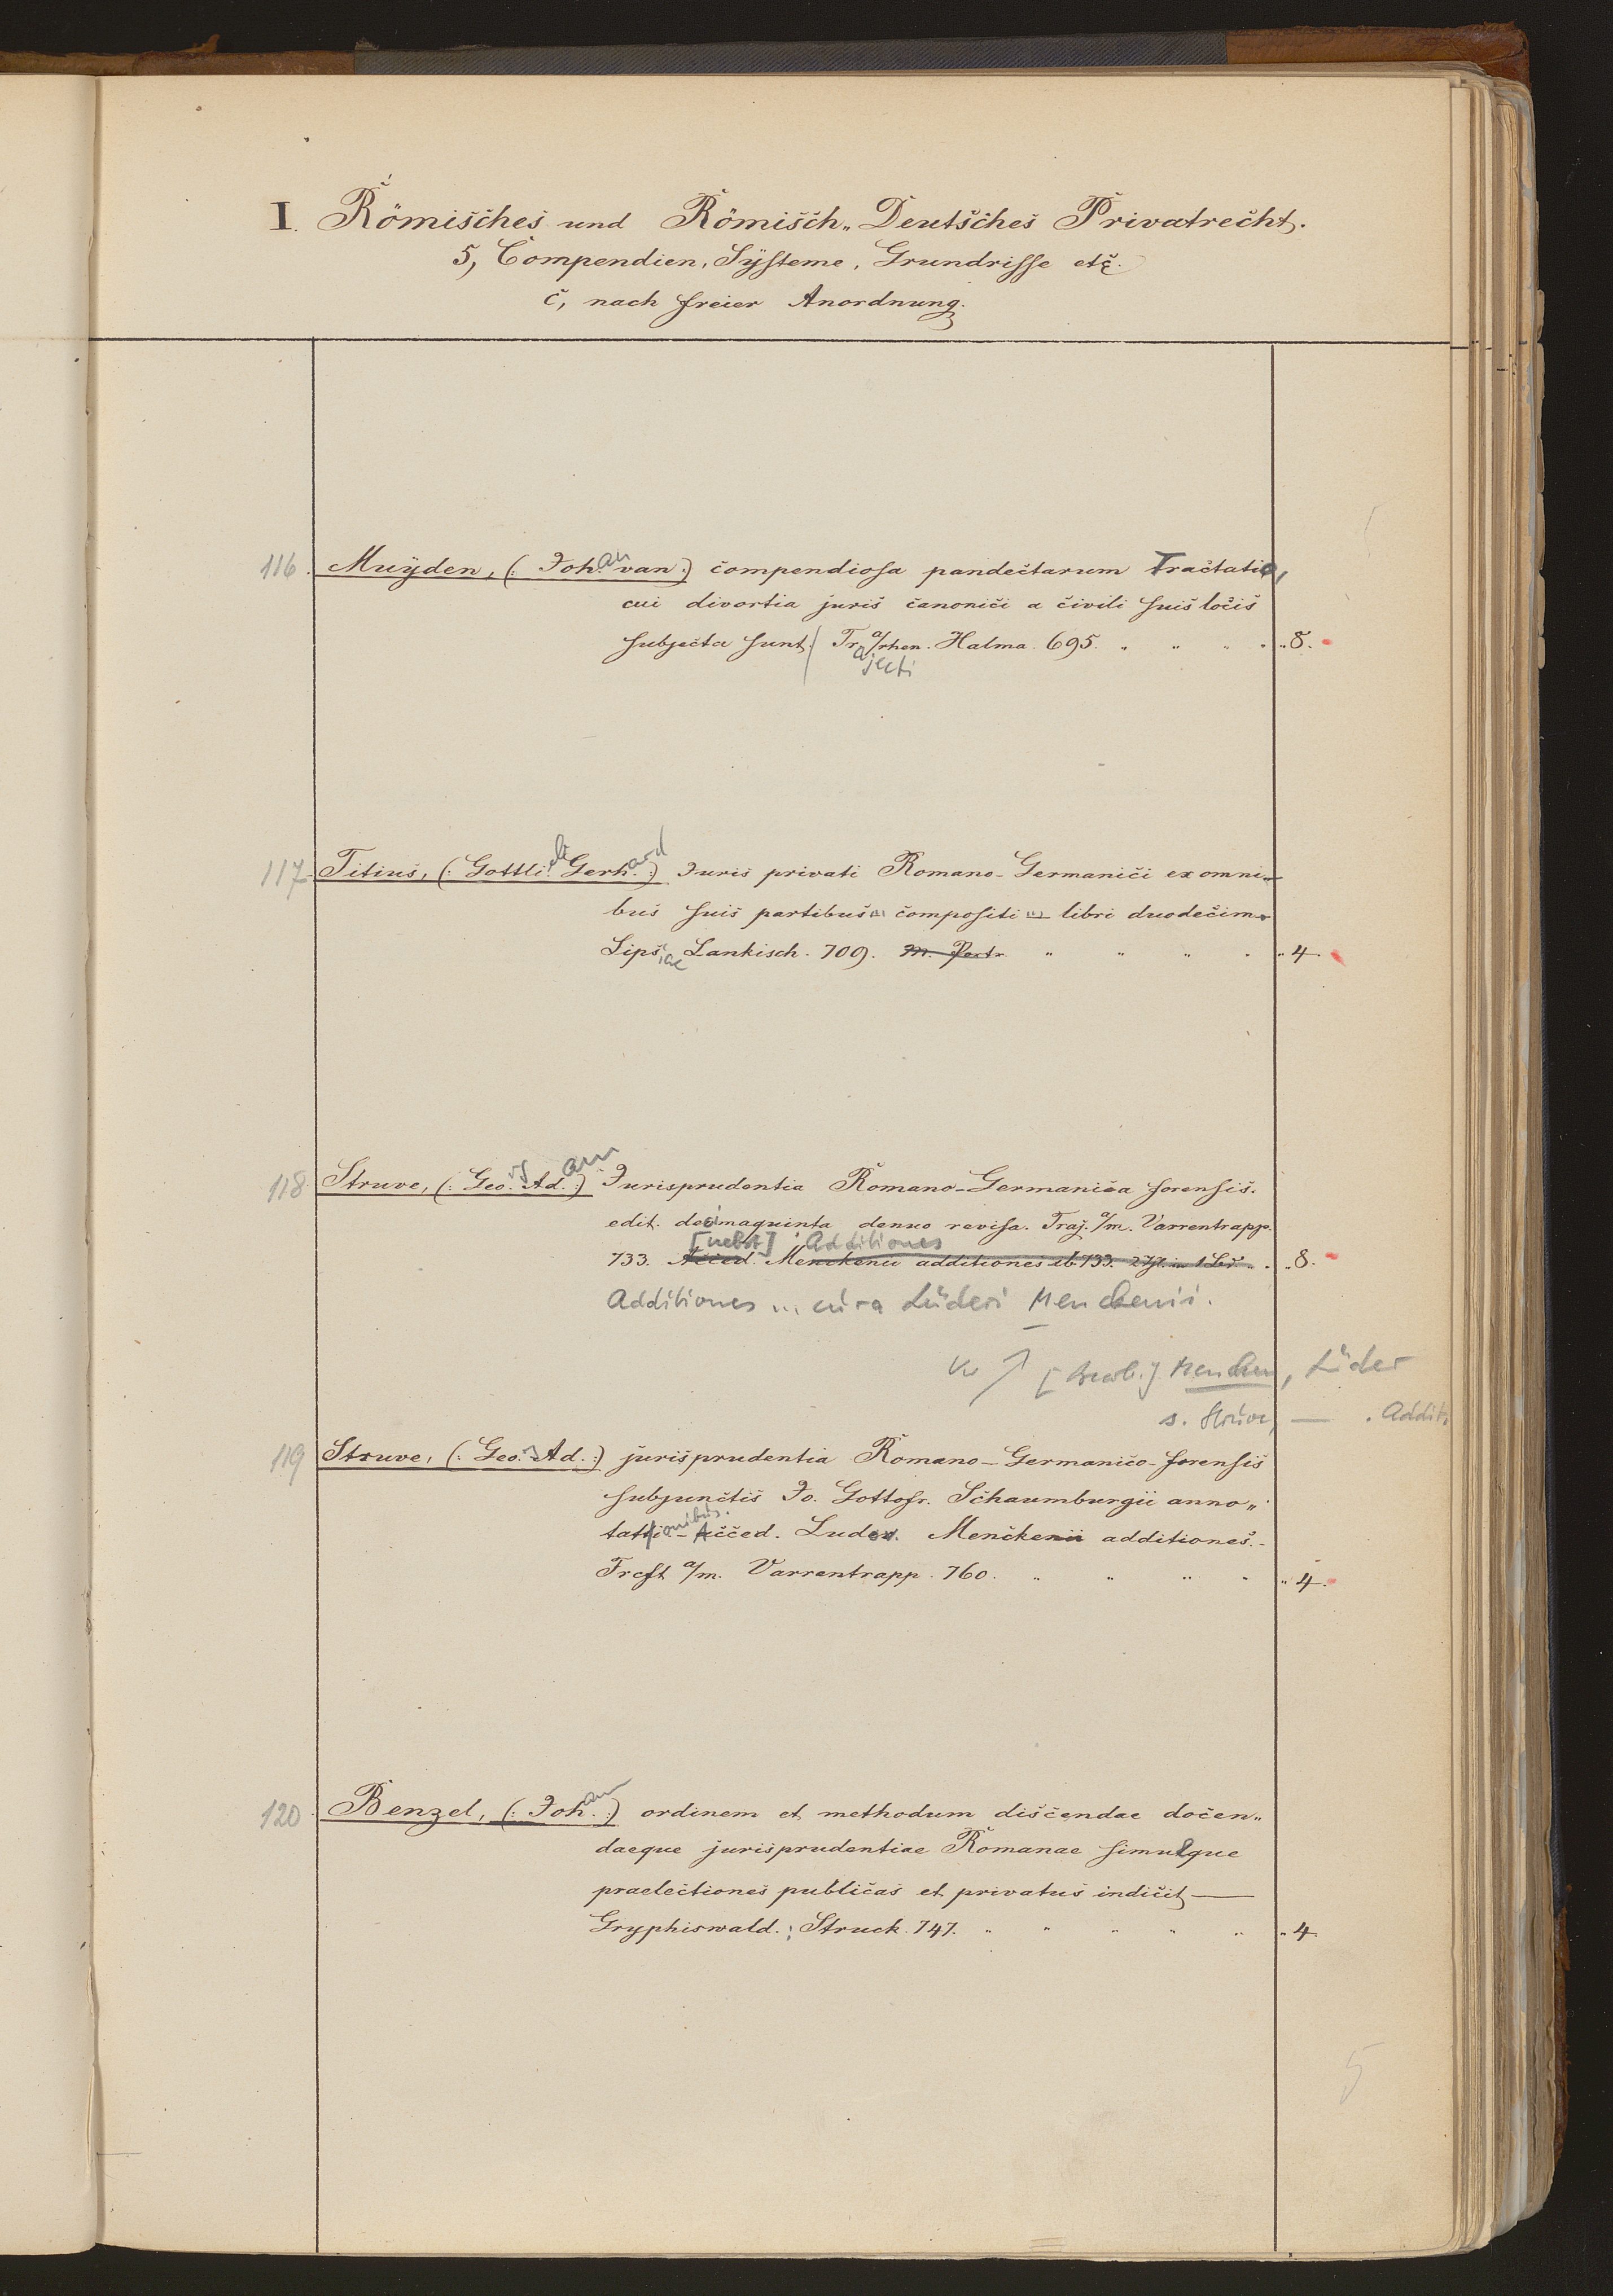 I. Römisches und Römisch-Deutsches Privatrecht.
5, Compendien, Systeme, Grundrisse etc.
c, nach freier Anordnung.
116. Muÿden, (: Johan van :) compendiosa pandectarum Tractatio,
cui divortia juris canonici a civili suis locis
subjecta sunt. / Trajecti a/rhen. Halma. 695. " " " " " 8.
117. Titius, (: Gottlieb Gerhard :) Juris privati Romano-Germanici ex omni-
bus suis partibus compositi libri duodecim
Lipsiae Lankisch. 709. M. Portr. " " " " " 4.
118. Struve, (: Georg Adam :) Jurisprudentia Romano-Germanica forensis.
edit. decimaquinta denuo revisa. Traj. a/m. Varrentrapp.
[nebst] Additiones
733. Acced. Menckenii additiones ib. 733. 2 Thl. in 1 Bd. " . " 8.
Additiones ... cura Lüderi Menckenii.
Vw ↑ [Bearb.] Mencken, Lüder
s. Struve, — . Addit.
119 Struve, (: Georg Ad. :) jurisprudentia Romano-Germanico-forensis
subjunctis Jo. Gottofr. Schaumburgii anno-
tationibus. - Acced. Luder. Menckenii additiones. -
Frcft a/m. Varrentrapp. 760. " " " " " 4.
120. Benzel, (: Johan :) ordinem et methodum discendae docen-
daeque jurisprudentiae Romanae simulque
praelectiones publicas et privatus indicit —
Gryphiswald.; Struck. 747. " " " " " " 4.
5